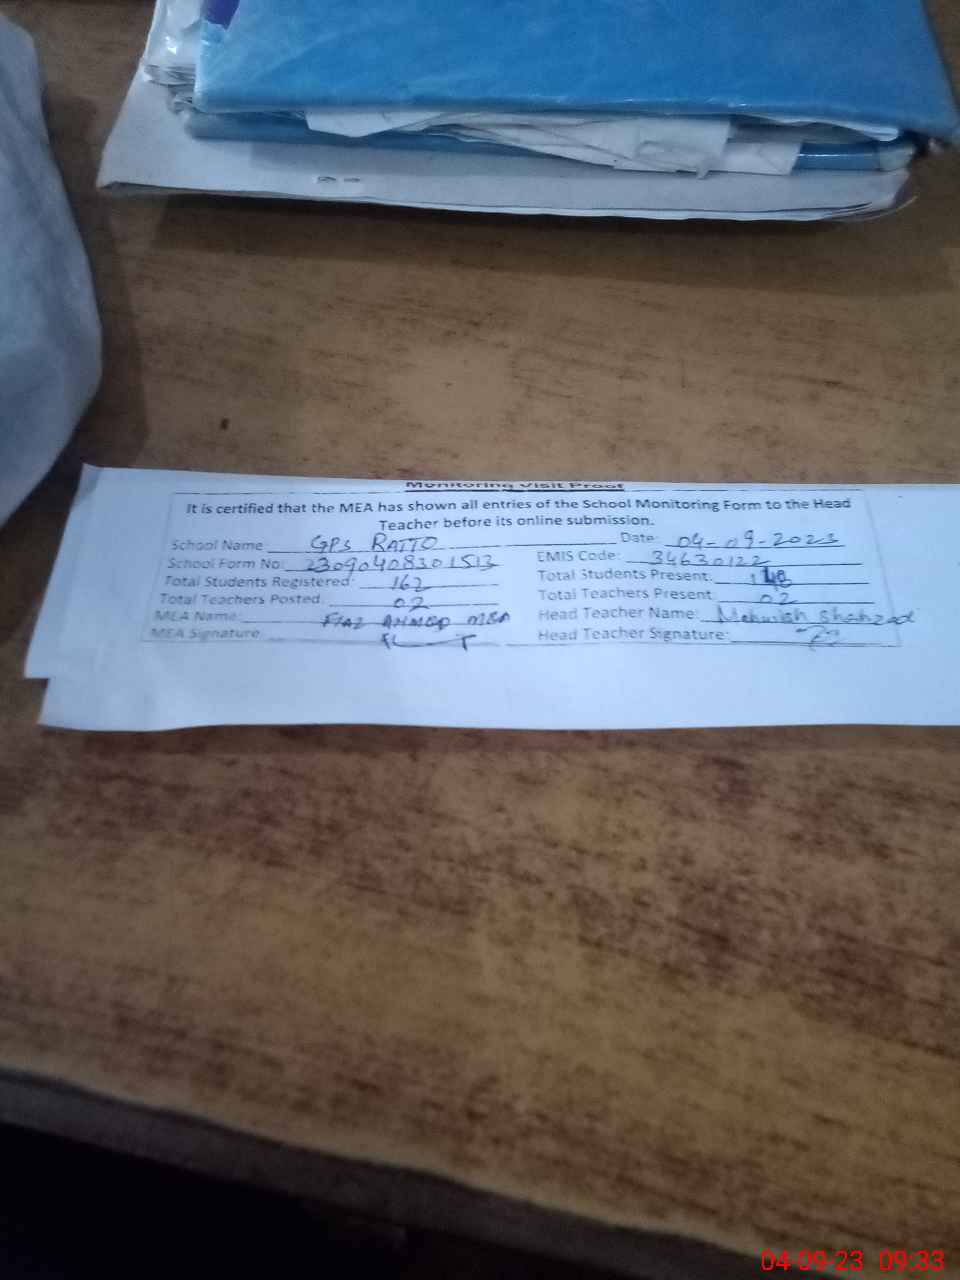 Monitoring Visit Proof
It is certified that the MEA has shown all entries of the School Monitoring Form to the Head
Teacher before its online submission.
School Name GPS RATTO Date: 04-09-2023
School Form No: 23090408301513 EMIS Code: 34630122
Total Students Registered: 162 Total Students Present:
Total Teachers Posted: 02 Total Teachers Present: 02
MEA Name: FIAZ AHMED MEA Head Teacher Name: Mehwish Shahzad
MEA Signature Head Teacher Signature:
04-09-23 09:33